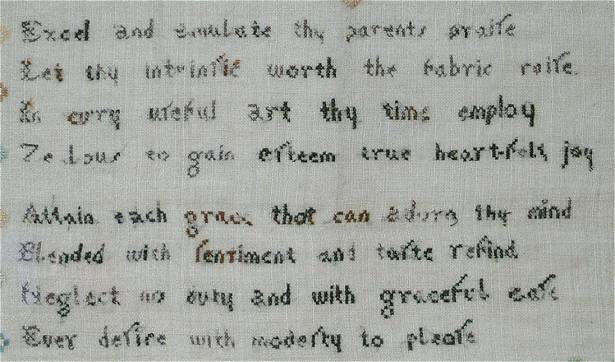 Excel and emulate thy parents praiſe
Let thy intrinſic worth the fabric raiſe
In evry uſeful art thy time employ
Zealous to gain eſteem true heart-felt joy
Attain each grace that can adorn thy mind
Blended with ſentiment and taſte refind
Neglect no duty and with graceful eaſe
Ever deſire with modeſty to pleaſe